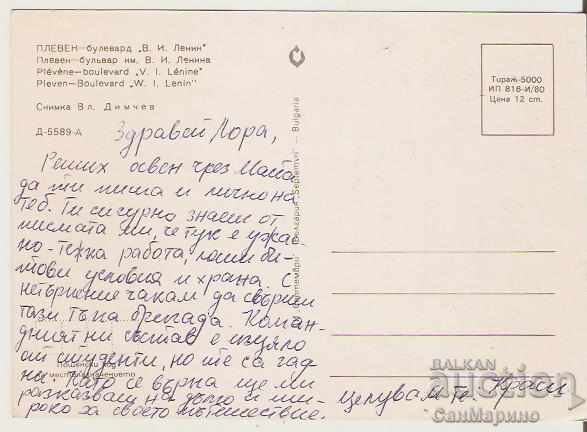 ПЛЕВЕН—булевард „В. И. Ленин"
Плевен—бульвар им. В. И. Ленина
Plévène—boulevard „V. I. Lénine"
Pleven—Boulevard „W. I. Lenin"
Снимка Вл. Димчев
Д-5589-А
Тираж-5000
ИП 816-И/80
Цена 12 ст.
„Септември" България „Septemvri" — Bulgaria
Здравей Лора,
Реших освен чрез Маша
да ти пиша и лично на
теб. Ти сигурно знаеш от
писмата ми, че тук е ужас-
но - тежка работа, лоши би-
тови условия и храна. С
нетърпение чакам да свърши
тази тъпа бригада. Коман-
дният ни състав е изцяло
от студенти, но те са гад-
ни. Като се върна ще ми
разказваш на дълго и ши-
роко за своето пътешествие.
Целувам те. Краси
Пощенски код
местоназначението
BALKAN
auction
СанМарино